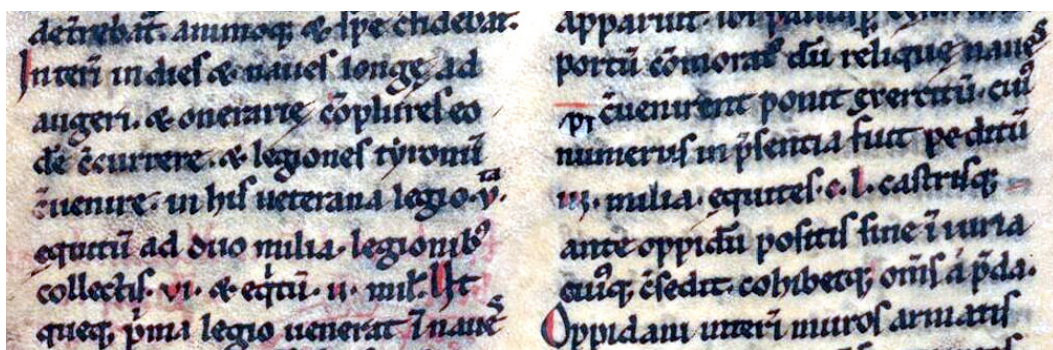 detrebat̄. animoq; & ip̄e c̄fidebat.
Inteȓi indies & naues longę ad
augeri. & onerarię c̄oplures eo
de c̄currere. & legiones tyronū
c̄uenire. in his ueterana legio .v̄.
equitū ad duo milia. legionib᷒
collectis .vi. & eq̇tū .ii. mil̄. Ut
queq; ṗma legio uenerat ī naues
apparuit. ibi
portū c̄omorat᷒ dū relique naues
c̄uenirent ponit exercitū. cui᷒
numerus in p̄sentia fuit peditū
iii. milia. equites .c.l. castrisq;
ante oppidū positis sine īiuria
cuiq; c̄sedit. cohibetq; om̄is á p̄da.
Oppidani inteȓi muros armatis